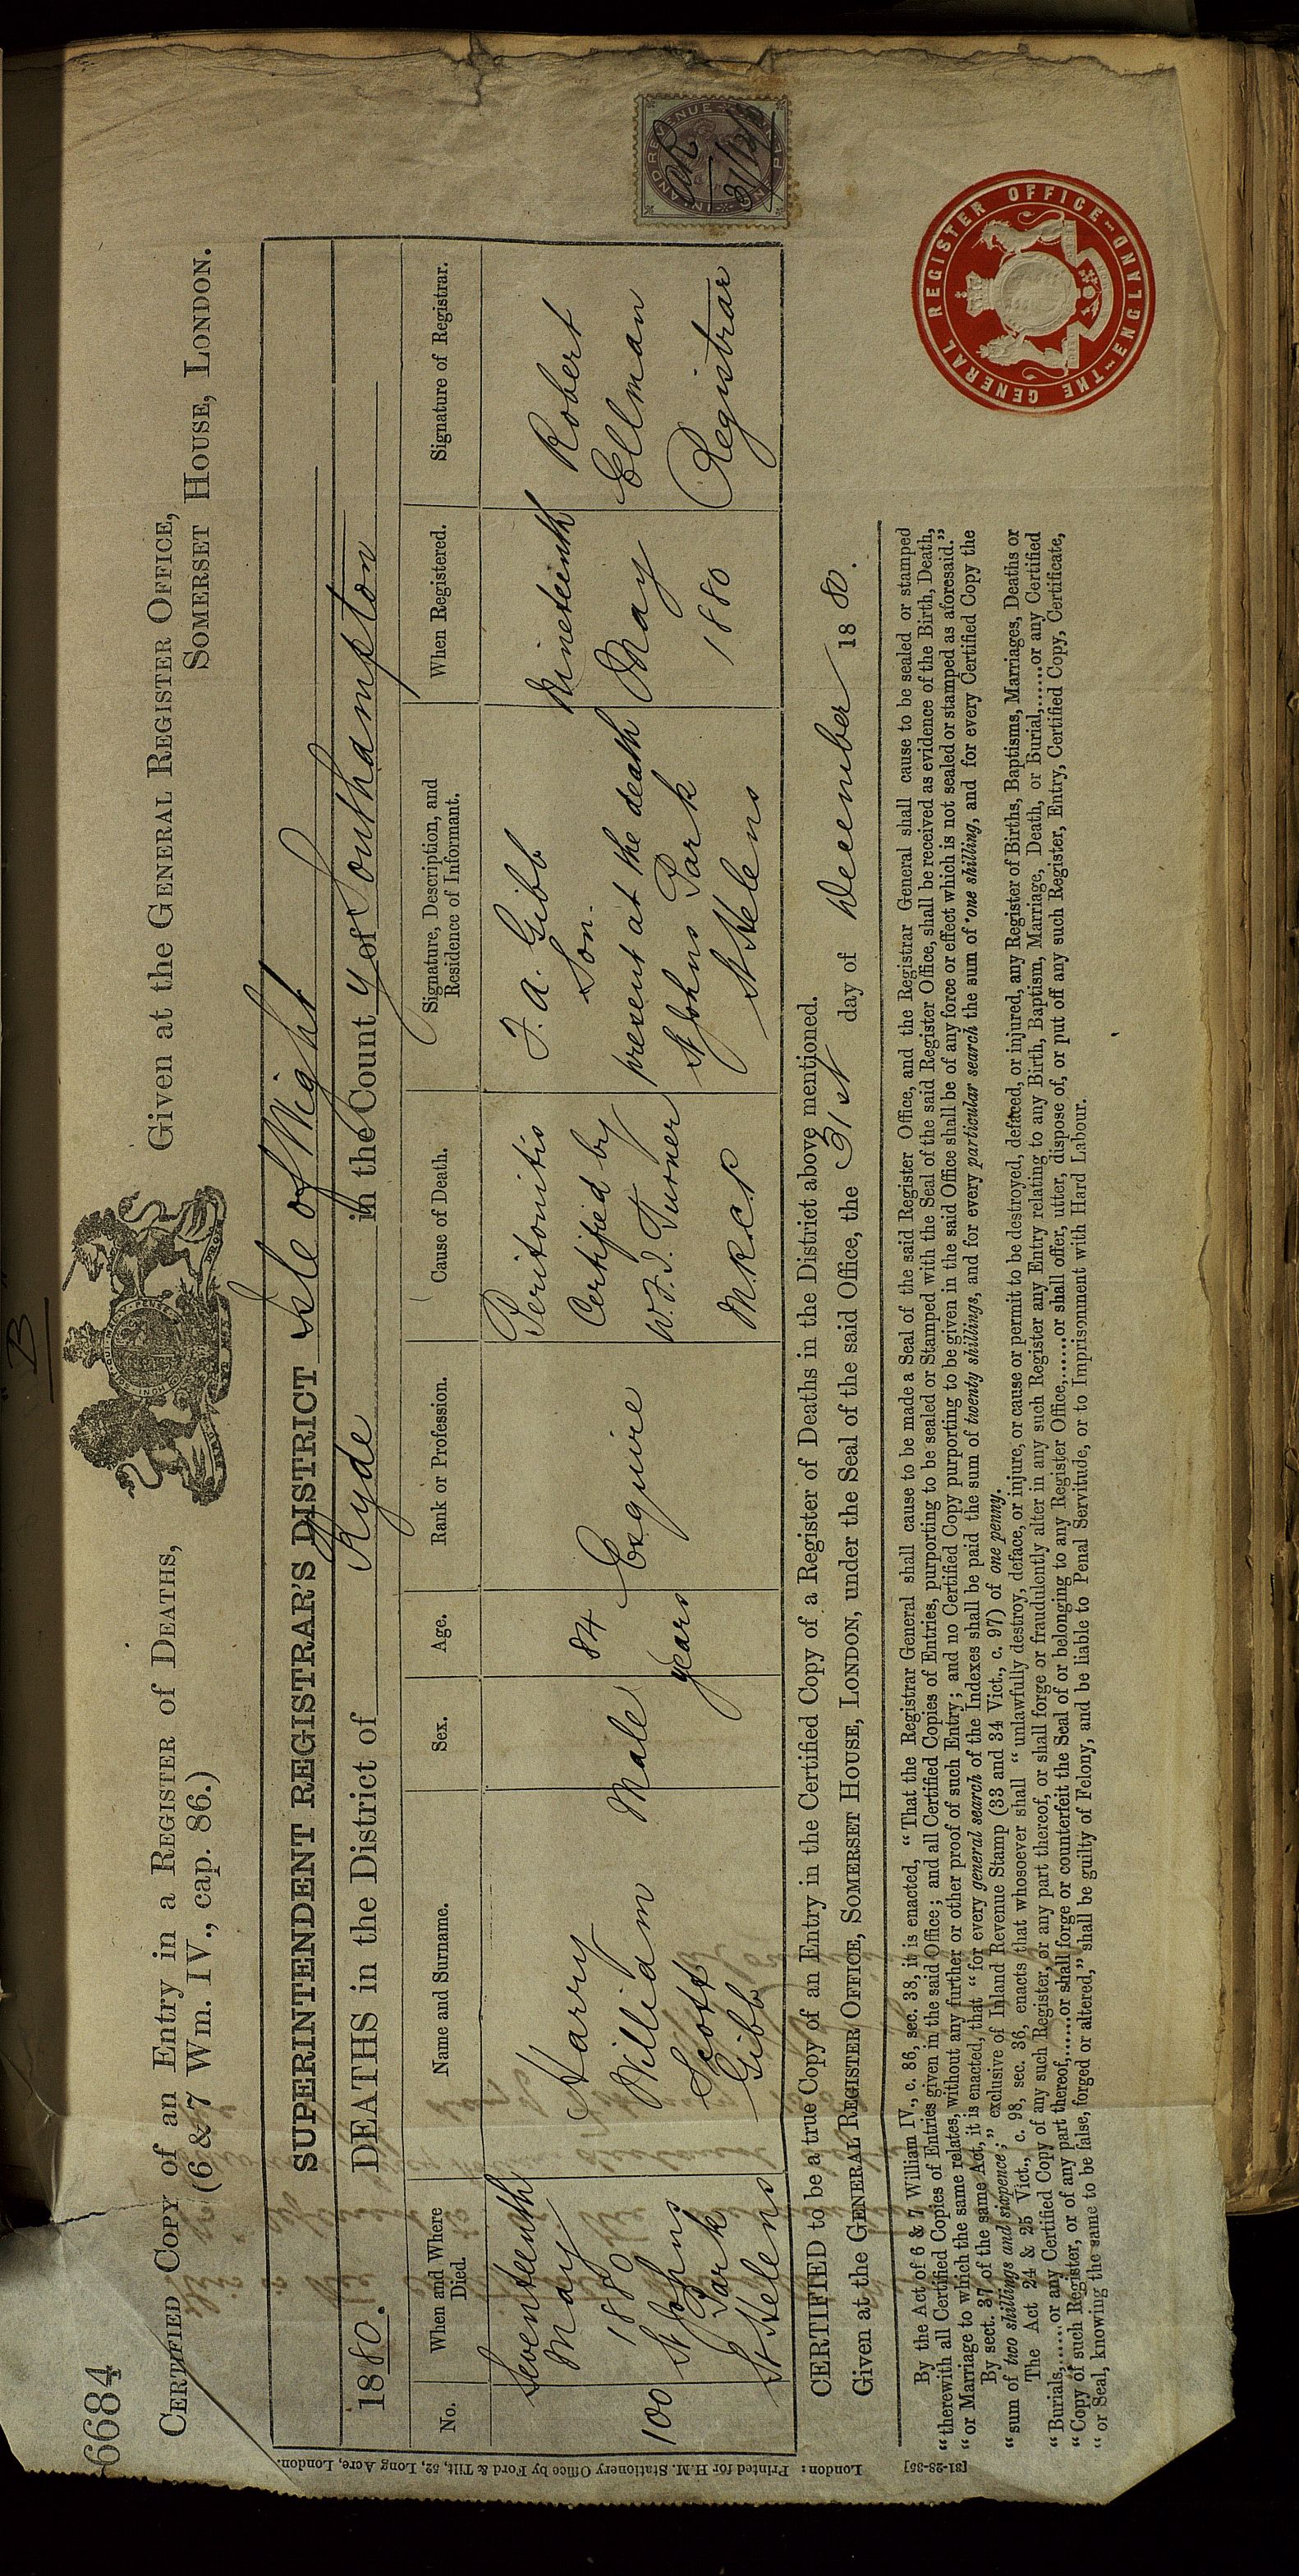 B
6684
CERTIFIED COPY of an Entry in a REGISTER of DEATHS,
(6 & 7 Wm. IV., cap. 86.)
HONI SOIT QUI MAL Y PENSE
Given at the GENERAL REGISTER OFFICE,
SOMERSET HOUSE, LONDON.
SUPERINTENDENT REGISTRAR'S DISTRICT Isle of Wight
1880. DEATHS in the District of Ryde in the County of Southampton
No.
When and Where
Died.
Name and Surname.
Sex.
Age.
Rank or Profession.
Cause of Death.
Signature, Description, and
Residence of Informant.
When Registered.
Signature of Registrar.
100
Seventeenth
May
1880
St Johns
Park
St Helens
Harry
William
Scott
Gibb
Male
84
years
Esquire
Peritonitis
Certified by
W. F. J. Turner
M.R.C.S
F. A. Gibb
Son.
present at the death
St Johns Park
St Helens
Nineteenth
May
1880
Robert
Ellman
Registrar
INLAND REVENUE
31/12/
CERTIFIED to be a true Copy of an Entry in the Certified Copy of a Register of Deaths in the District above mentioned.
Given at the GENERAL REGISTER OFFICE, SOMERSET HOUSE, LONDON, under the Seal of the said Office, the 31st day of December 1880.
By the Act of 6 & 7 William IV., c. 86, sec. 38, it is enacted, "That the Registrar General shall cause to be made a Seal of the said Register Office, and the Registrar General shall cause to be sealed or stamped
"therewith all Certified Copies of Entries given in the said Office; and all Certified Copies of Entries, purporting to be sealed or Stamped with the Seal of the said Register Office, shall be received as evidence of the Birth, Death,
"or Marriage to which the same relates, without any further or other proof of such Entry; and no Certified Copy purporting to be given in the said Office shall be of any force or effect which is not sealed or stamped as aforesaid."
By sect. 37 of the same Act, it is enacted, that "for every general search of the Indexes shall be paid the sum of twenty shillings, and for every particular search the sum of one shilling, and for every Certified Copy the
"sum of two shillings and sixpence;" exclusive of Inland Revenue Stamp (33 and 34 Vict., c. 97) of one penny.
The Act 24 & 25 Vict., c. 98, sec. 36, enacts that whosoever shall "unlawfully destroy, deface, or injure, or cause or permit to be destroyed, defaced, or injured, any Register of Births, Baptisms, Marriages, Deaths or
"Burials,......or any Certified Copy of any such Register, or any part thereof, or shall forge or fraudulently alter in any such Register any Entry relating to any Birth, Baptism, Marriage, Death, or Burial,......or any Certified
"Copy of such Register, or of any part thereof,......or shall forge or counterfeit the Seal of or belonging to any Register Office,......or shall offer, utter, dispose of, or put off any such Register, Entry, Certified Copy, Certificate,
"or Seal, knowing the same to be false, forged or altered," shall be guilty of Felony, and be liable to Penal Servitude, or to Imprisonment with Hard Labour.
THE GENERAL REGISTER OFFICE ENGLAND
London: Printed for H.M. Stationery Office by Ford & Tilt, 52, Long Acre, London.
[31-28-35]